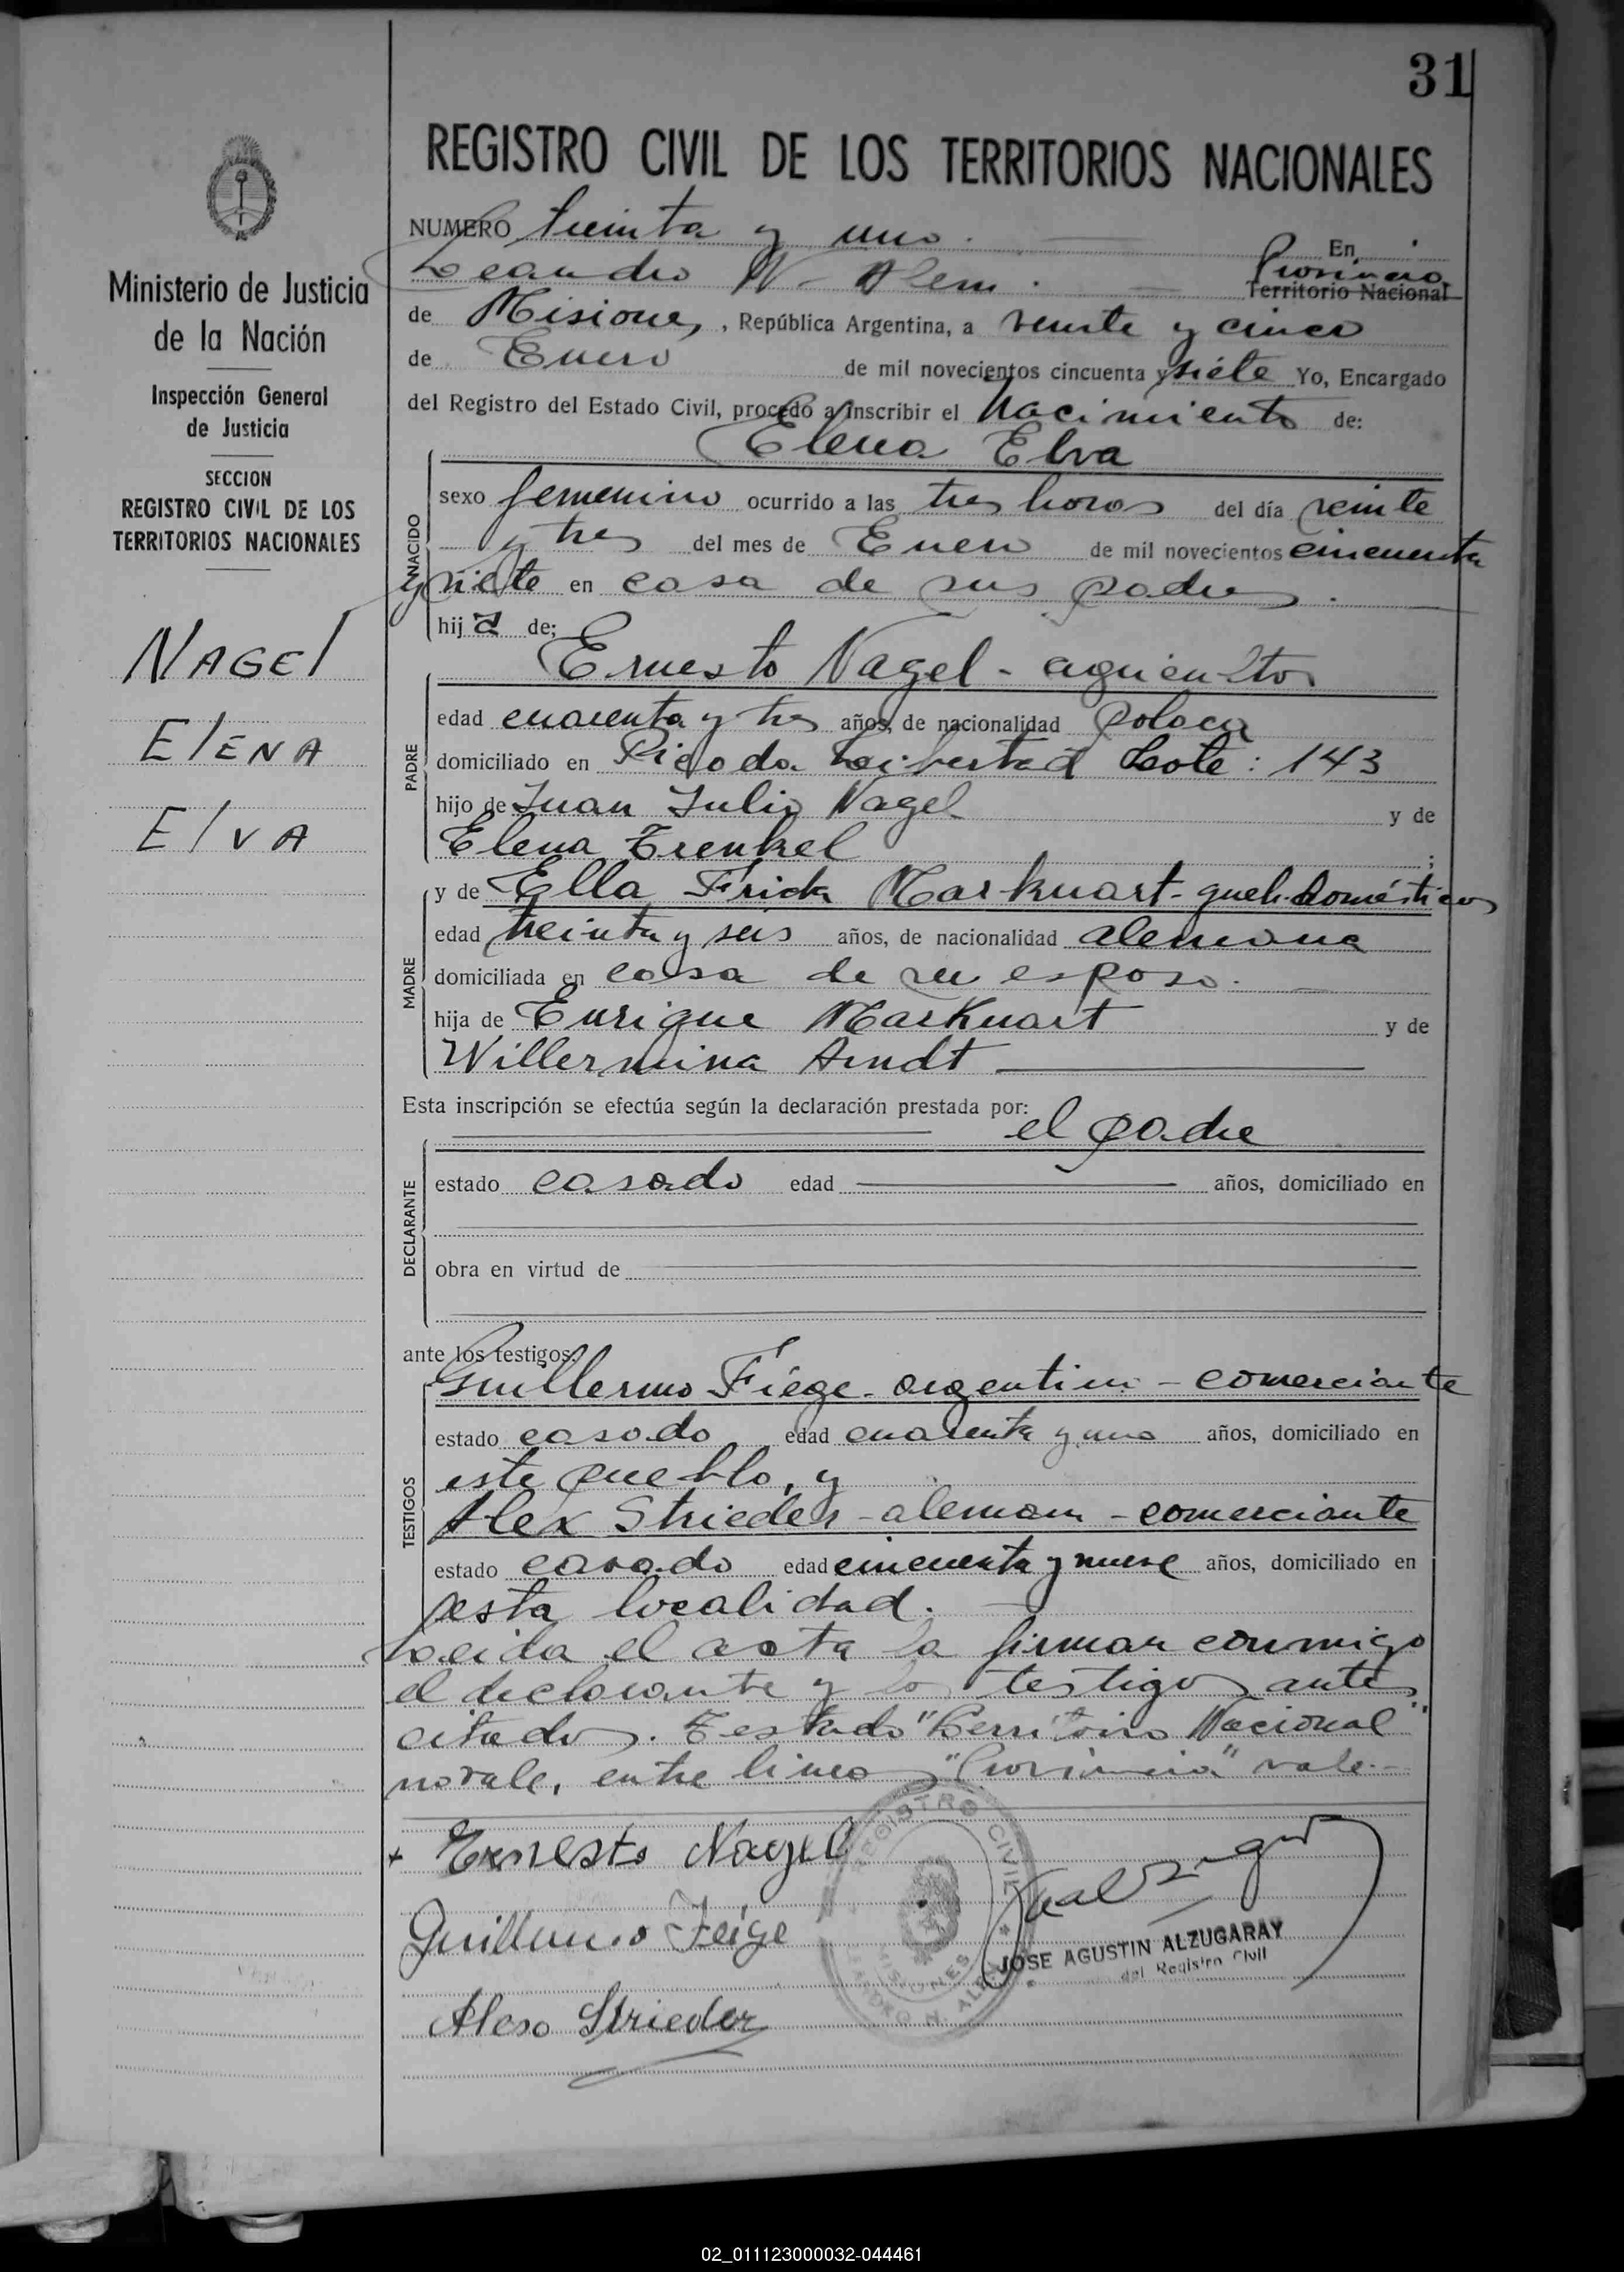 31
REGISTRO CIVIL DE LOS TERRITORIOS NACIONALES
Ministerio de Justicia
de la Nación
Inspección General
de Justicia
SECCION
REGISTRO CIVIL DE LOS
TERRITORIOS NACIONALES
NAGEl
ElENA
ElVA
NUMERO treinta y uno. En
Leandro N. Alem. Provincia
Territorio Nacional
de Misiones, República Argentina, a veinte y cinco
de Enero de mil novecientos cincuenta y siete Yo, Encargado
del Registro del Estado Civil, procedo a inscribir el Nacimiento de:
Elena Elva
NACIDO
sexo femenino ocurrido a las tres horas del día veinte
y tres del mes de Enero de mil novecientos cincuenta
y siete en casa de sus padres.
hija de;
PADRE
Ernesto Nagel - agricultor
edad cuarenta y tres años, de nacionalidad polaca
domiciliado en Picada Libertad Lote: 143
hijo de Juan Julio Nagel y de
Elena Trenkel ;
MADRE
y de Ella Frida Markuart - queh. domésticos
edad treinta y seis años, de nacionalidad alemana
domiciliada en casa de su esposo.
hija de Enrique Markuart y de
Willermina Arndt
Esta inscripción se efectúa según la declaración prestada por:
el padre
DECLARANTE
estado casado edad años, domiciliado en
obra en virtud de
ante los testigos:
TESTIGOS
Guillermo Fiege - argentino - comerciante
estado casado edad cuarenta y uno años, domiciliado en
este pueblo, y
Alex Strieder - aleman - comerciante
estado casado edad cincuenta y nueve años, domiciliado en
esta localidad.
Leida el acta la firman conmigo
el declarante y los testigos antes
citados. Testado "Territorio Nacional"
no vale, entre lineas "Provincia" vale.-
+ Ernesto Nagel
Guillermo Feige
Alexo Strieder
REGISTRO CIVIL
MISIONES
LEANDRO N. ALEM
JOSE AGUSTIN ALZUGARAY
del Registro Civil
02_011123000032-044461